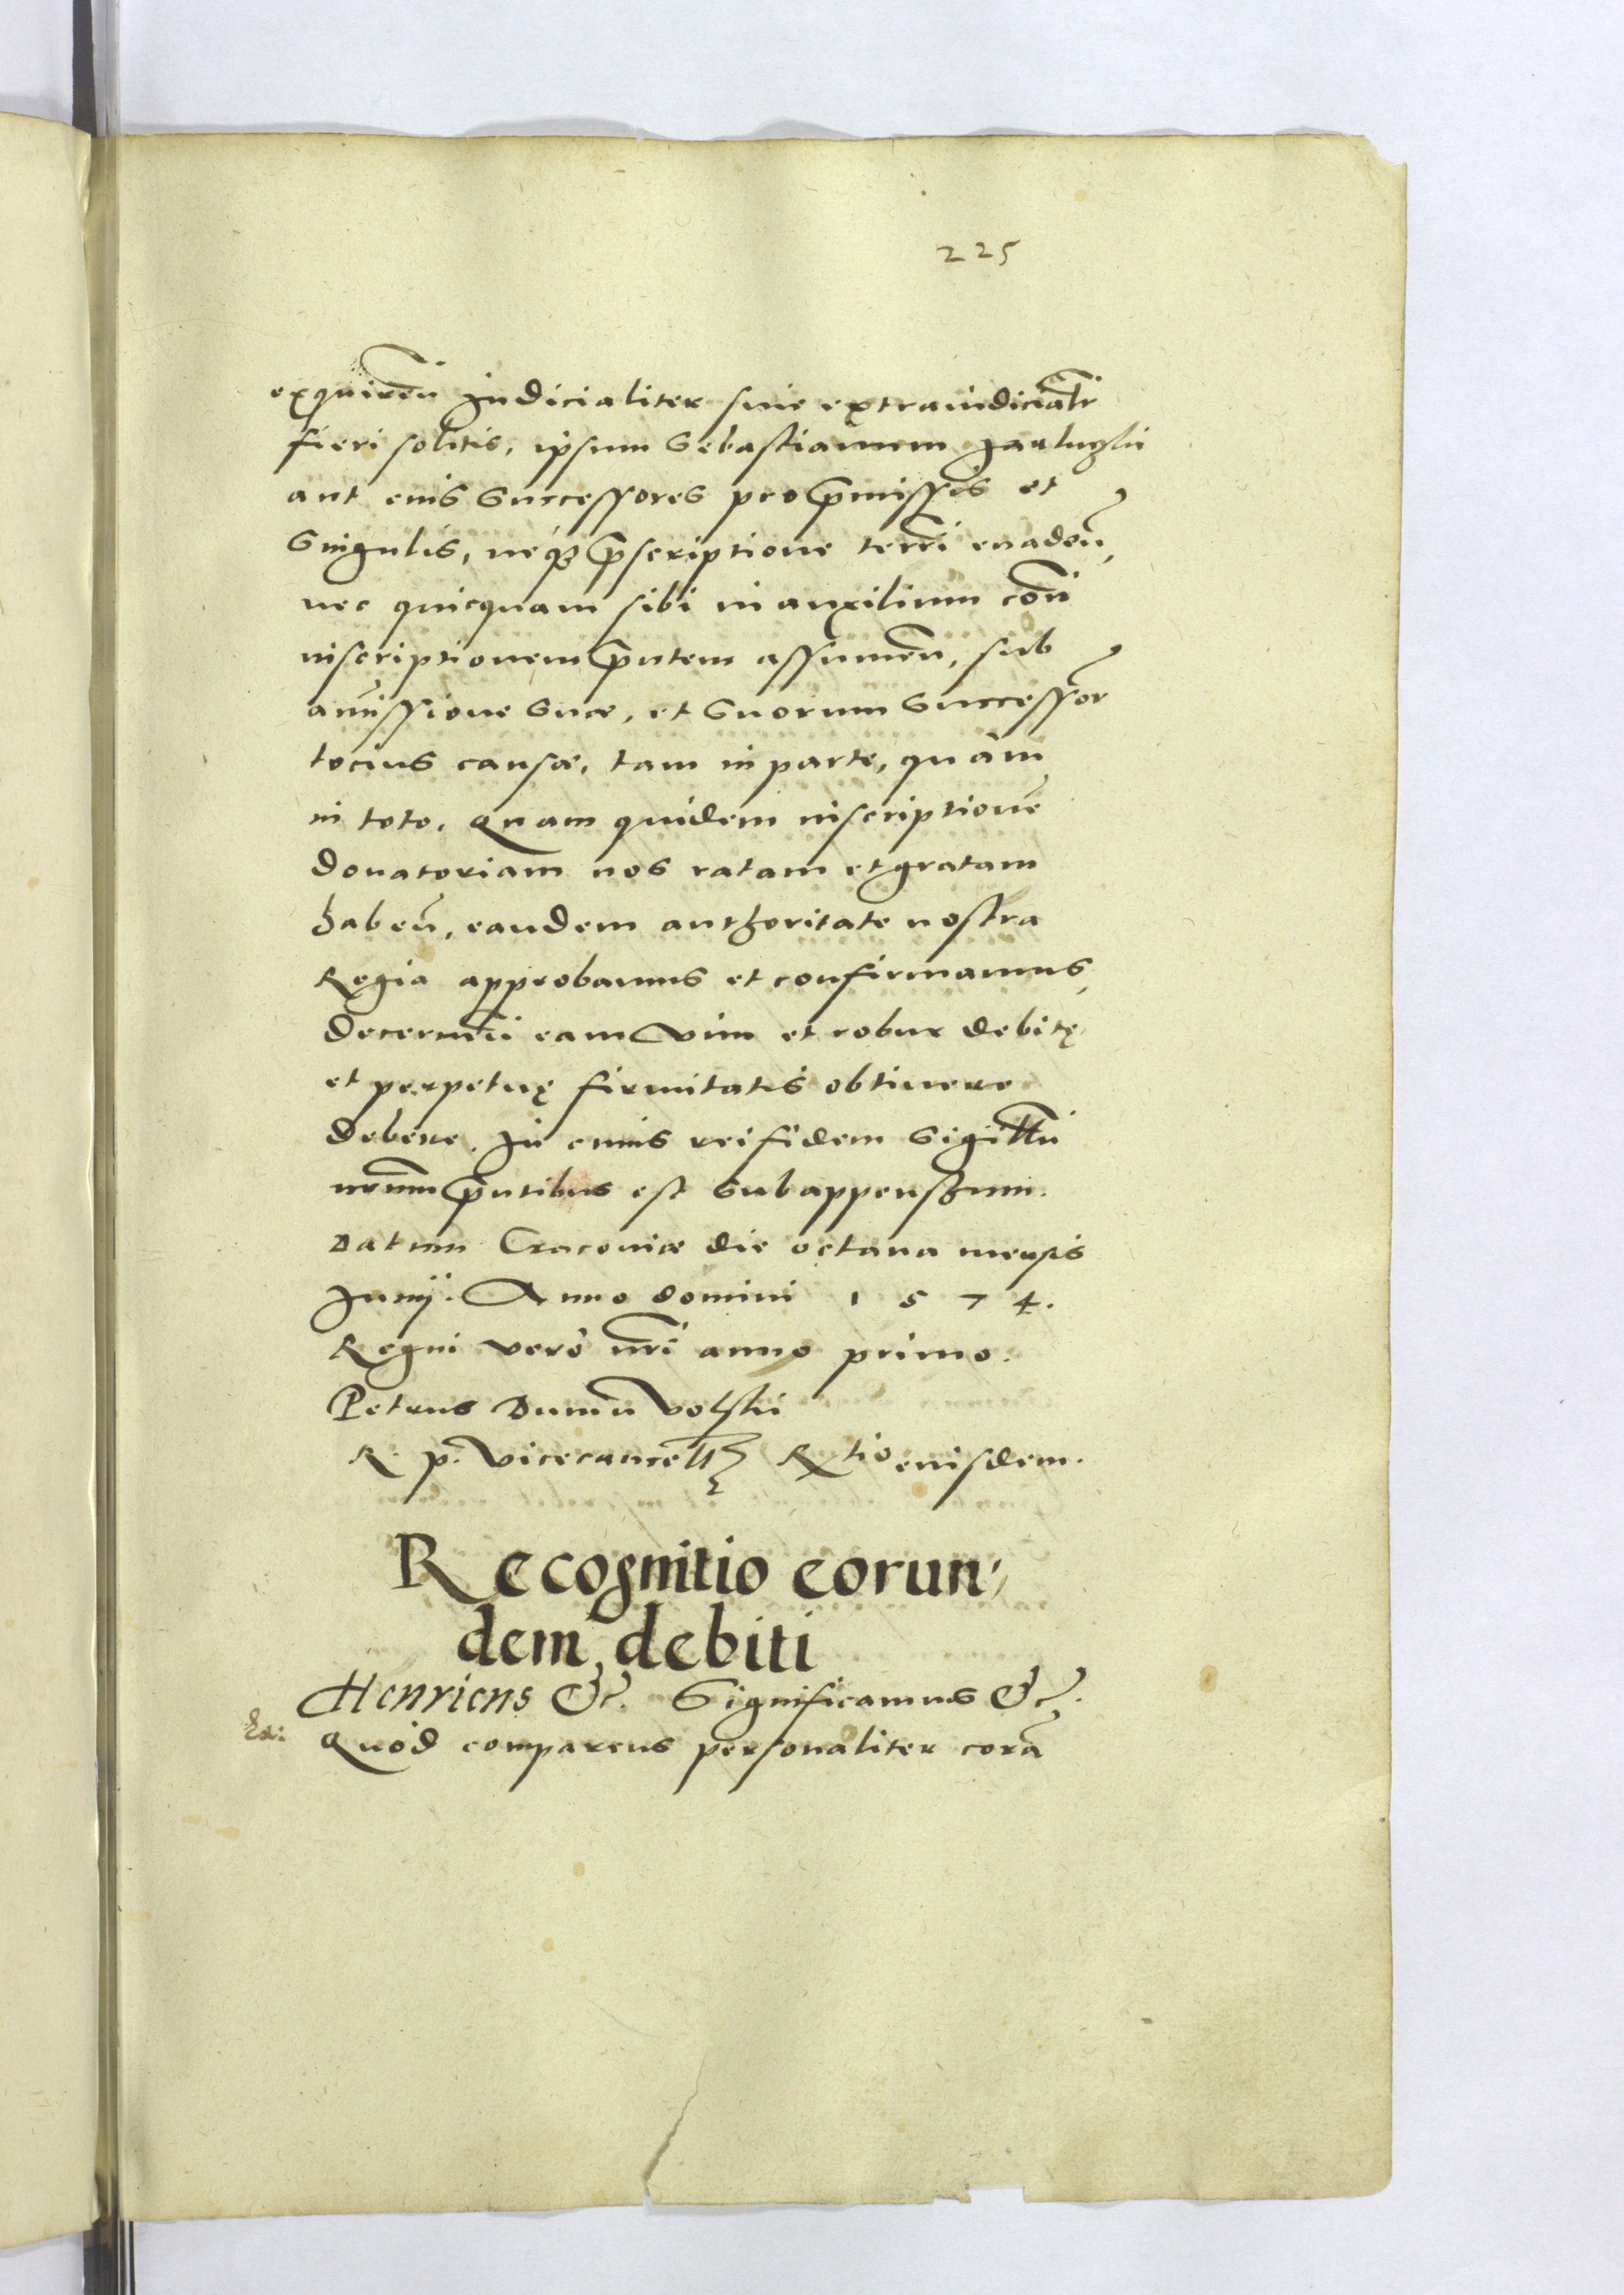 225
exquireñ Judicialiter siue extraiudicialr̃
fieri solitis, ipsum Sebastianum
aut eius Successores pro p̃missis et
Singulis, neq₃ p̃scriptione terri euadeñ,
nec quicquam sibi in auxilium coñ
inscriptionem p̃ntem assumeñ, sub
amissione Suæ, et Suorum Successor̃
tocius causæ, tam in parte, quàm
in toto. Quam quidem inscriptionẽ
donatoriam nos ratam et gratam
habeñ, eandem authoritate nostra
Regia approbamus et confirmamus,
decerneñ eam vim et robur debitę
et perpetuę firmitatis obtinere
debere. In cuius rei fidem Sigillũ
nr̃um p̃ntibus est Subappensum.
Datum Cracoviæ die octaua mensis
Junij. Anno domini 1 5 7 4.
Regni verò nr̃i anno primo.
Petrus Dunin Volski
R. p. Vicecancell₃ Rtio eiusdem.
Recognitio eorun⸗
dem debiti
Henricus &c. Significamus &c.
Quod comparens personaliter corã